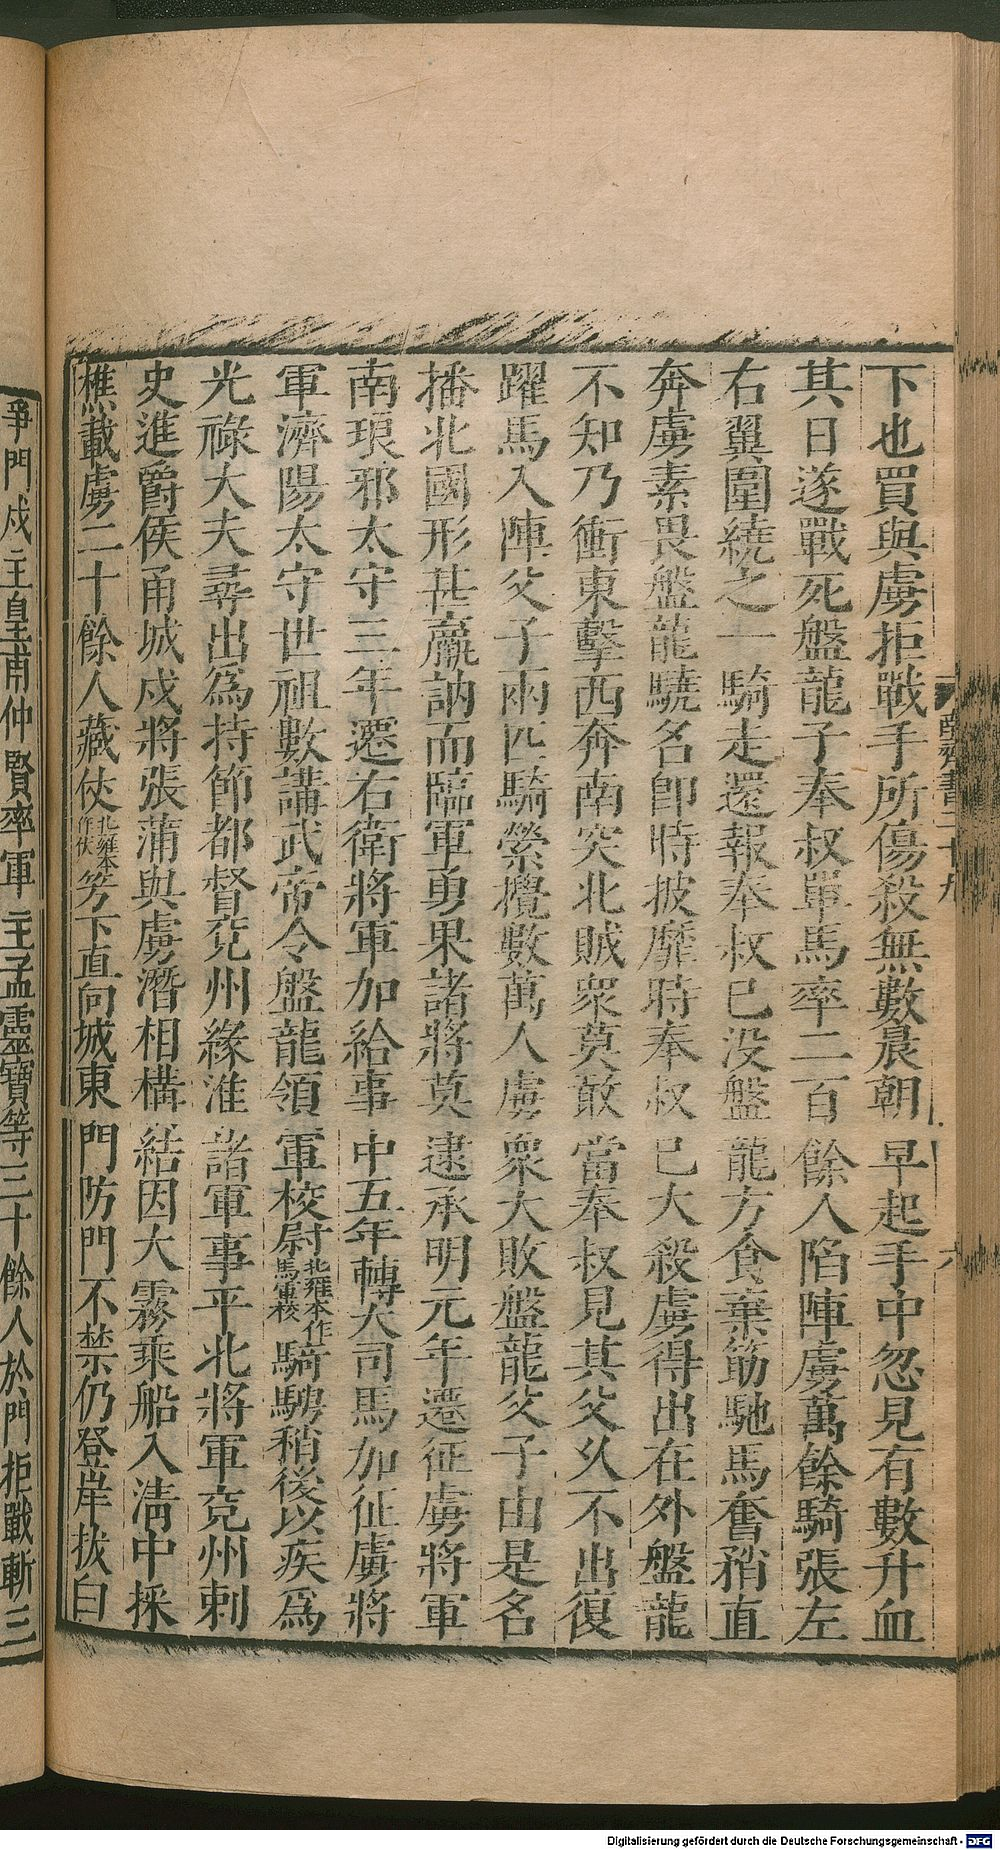 下也買與虜拒戰手所傷殺無數晨朝早起手中忽見有數升血
其日遂戰死盤龍子奉叔單馬率二百餘人陷陣虜萬餘騎張左
右翼圍繞之一騎走還報奉叔已没盤龍方食棄筯馳馬奮矟直
奔虜素畏盤龍驍名卽時披靡時奉叔已大殺虜得出在外盤龍
不知乃衝東擊西奔南突北賊衆莫敢當奉叔見其父久不出復
躍馬入陣父子兩匹騎縈攪數萬人虜衆大敗盤龍父子由是名
播北國形甚羸訥而臨軍勇果諸將莫逮承明元年遷征虜將軍
南琅邪太守三年遷右衛將軍加給事中五年轉大司馬加征虜將
軍濟陽太守世祖數講武帝令盤龍領軍校尉北雍本作馬軍校騎騁矟後以疾爲
光祿大夫尋出爲持節都督兗州緣淮諸軍事平北將軍兗州刺
史進爵侯甬城戍將張蒲與虜潛相構結因大霧乘船入清中採
樵載虜二十餘人藏伎北雍本作仗艻下直向城東門防門不禁仍登岸拔白
爭門戍主皇甫仲賢率軍主孟靈寶等三十餘人於門拒戰斬三
Digitalisierung gefördert durch die Deutsche Forschungsgemeinschaft - DFG